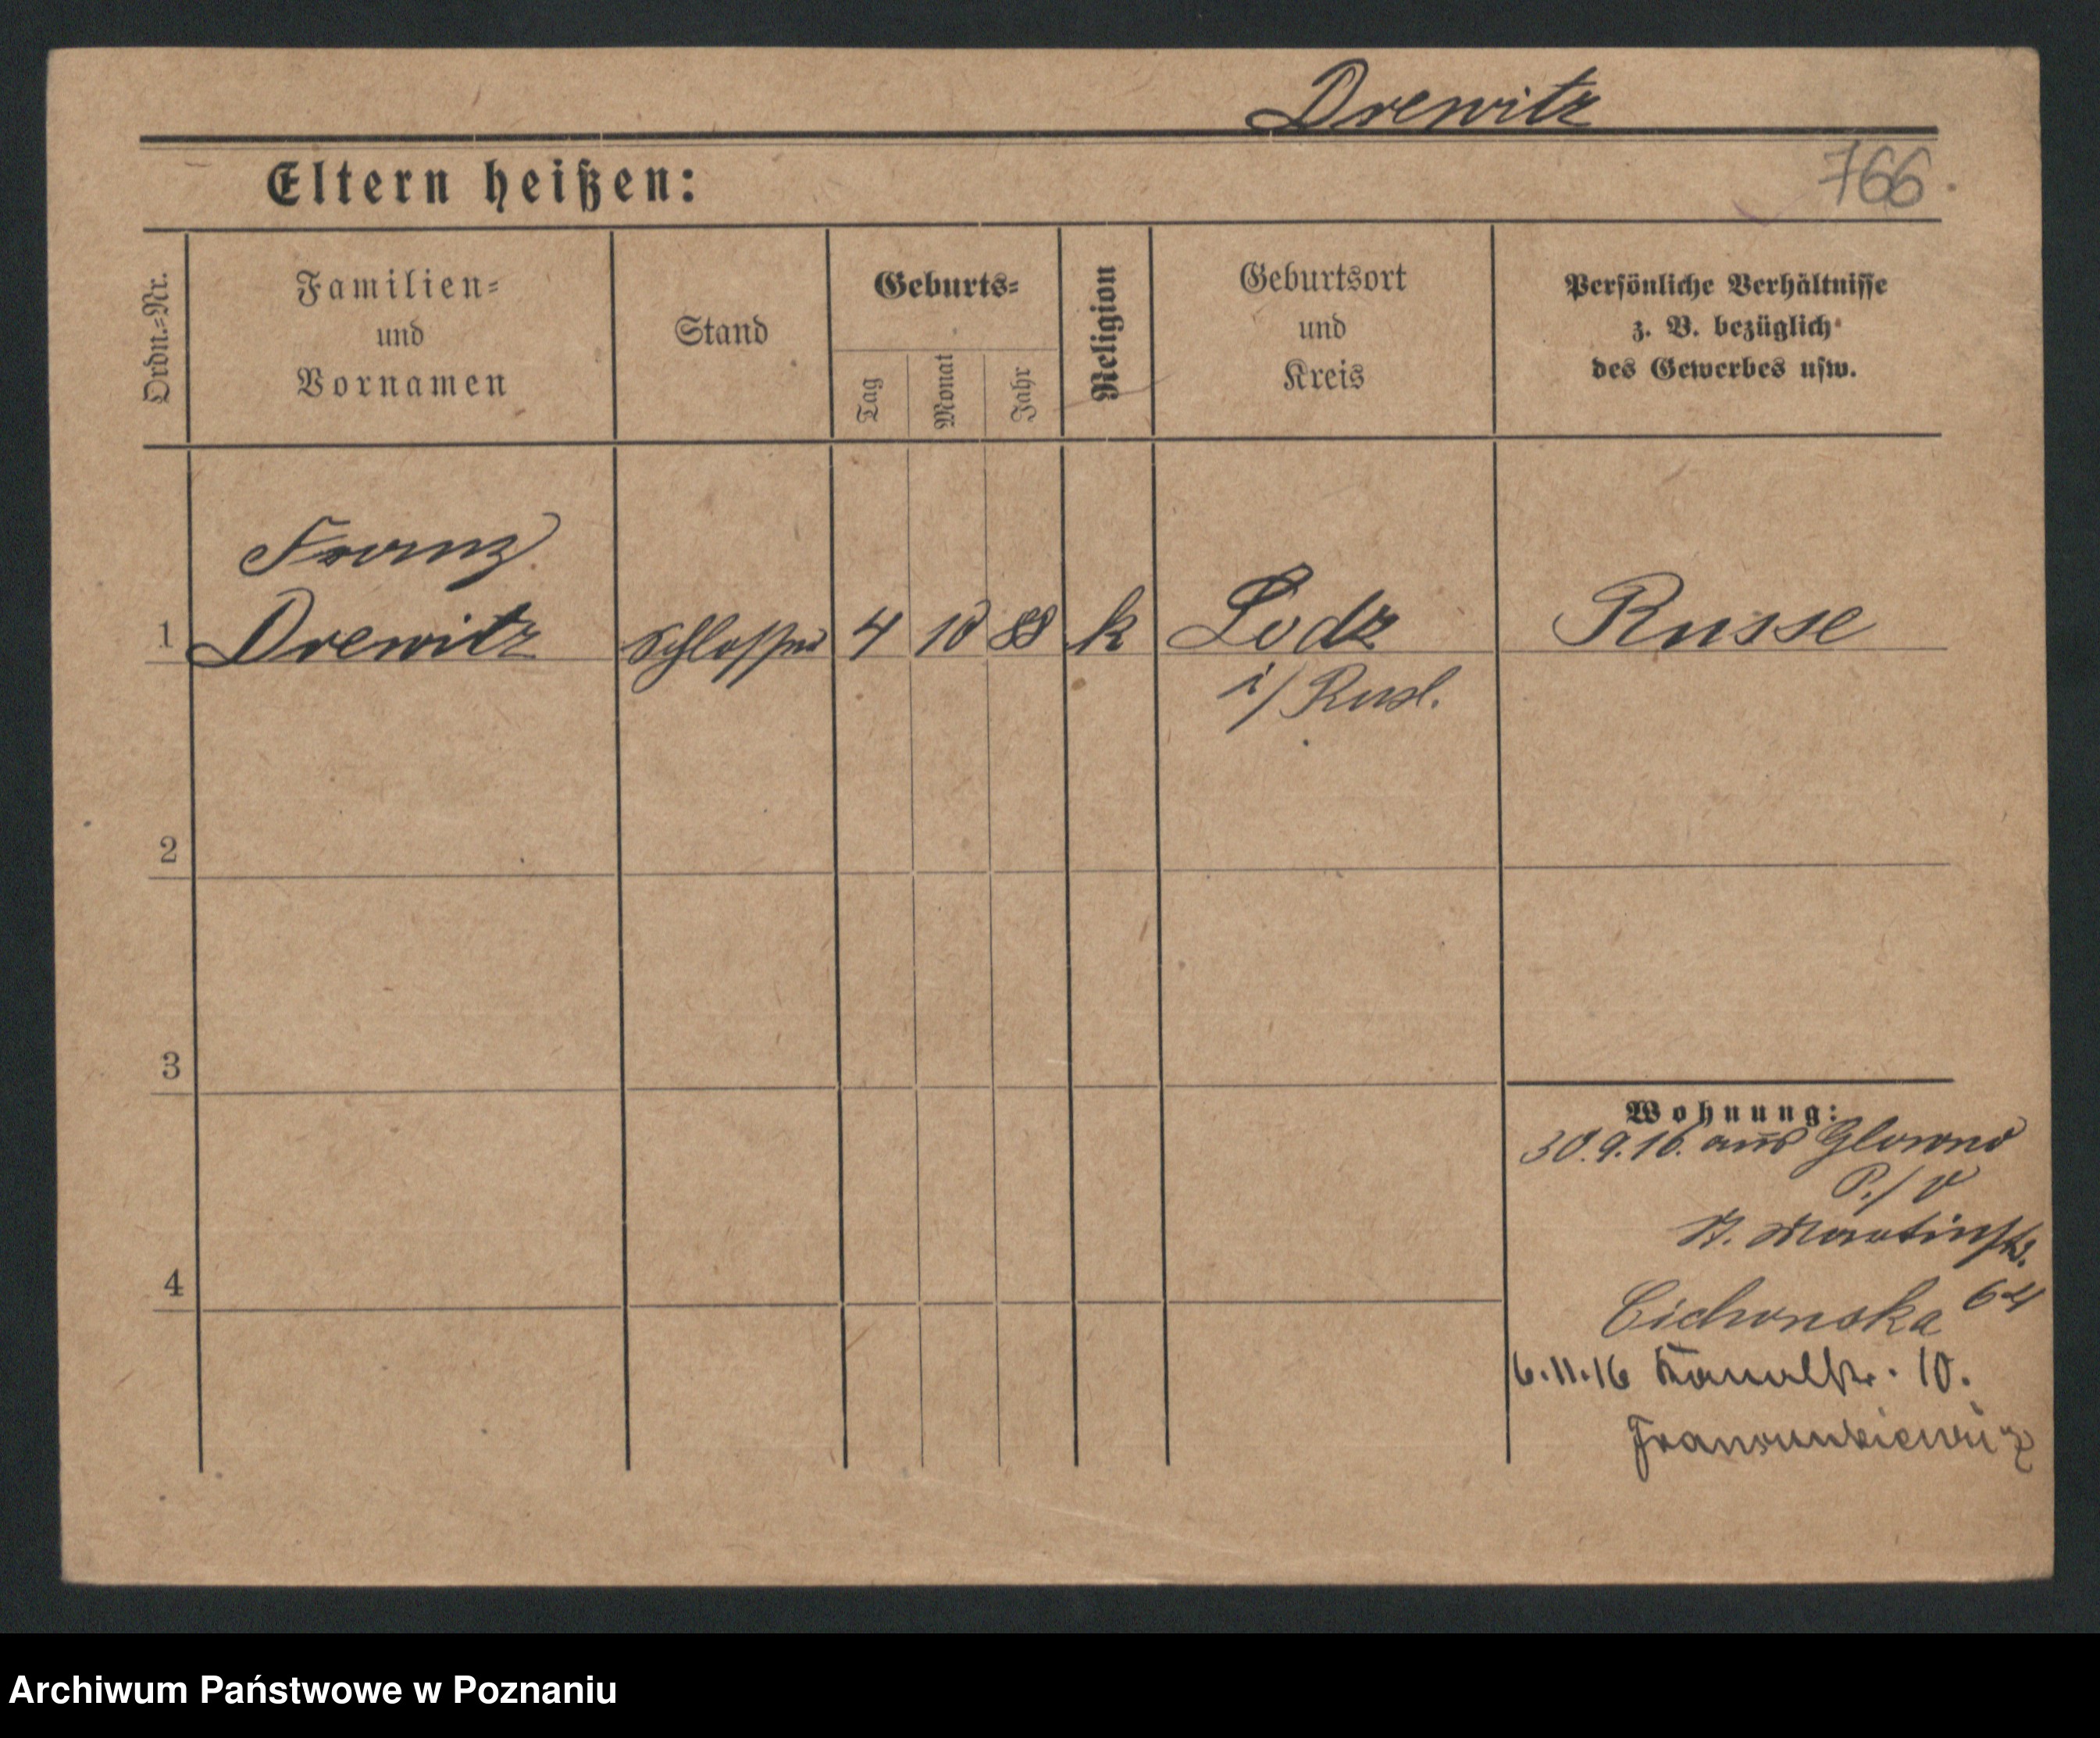 Drewitz
Eltern heißen:
766
Ordn.-Nr.
Familien-
und
Vornamen
Stand
Geburts-
Tag
Monat
Jahr
Religion
Geburtsort
und
Kreis
Persönliche Verhältnisse
z. B. bezüglich
des Gewerbes usw.
Franz
1 Drewitz Schlosser 4 10 88 k Lodz Russe
i/ Rusl.
2
3
4
Wohnung:
30.9.16. aus Glowno
P./O
St. Martinstr.
64
Cichonska
6.11.16 Kanalstr. 10.
Archiwum Państwowe w Poznaniu